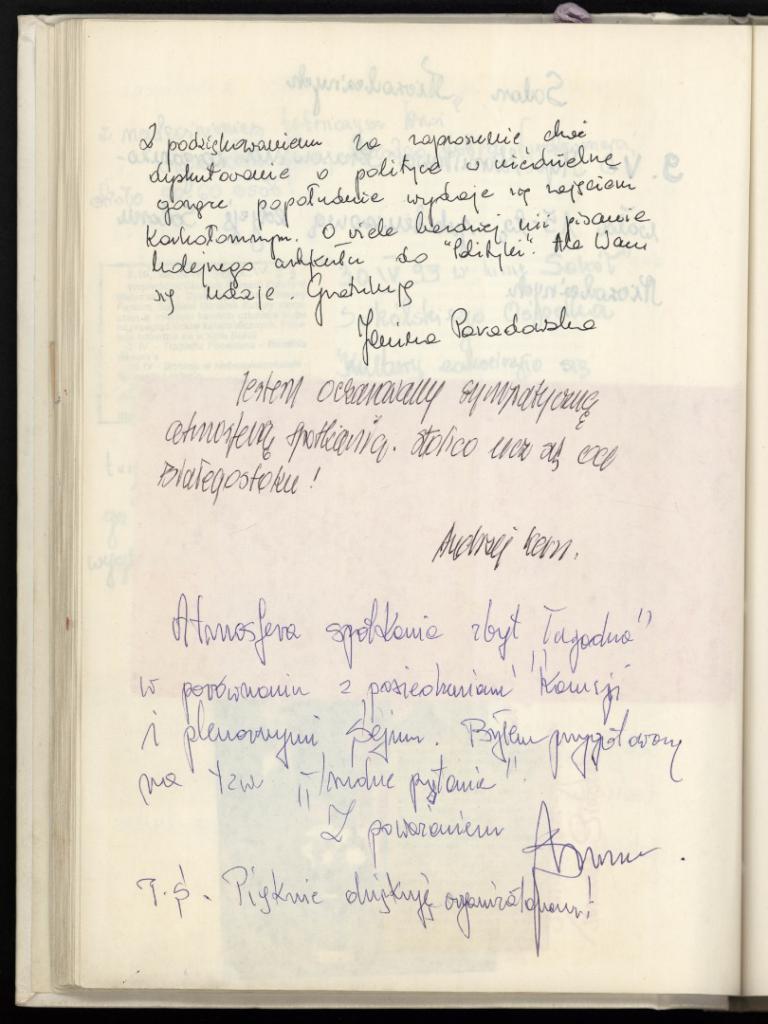 Z podziękowaniem za zaproszenie choć
dyskutowanie o polityce w niedzielne
gorące popołudnie wydaje się zajęciem
karkołomnym. O wiele bardziej niż pisanie
kolejnego artykułu do "Polityki". Ale Wam
się udaje. Gratuluję
Janina Paradowska
Jestem oczarowany sympatyczną
atmosferą spotkania. Stolico ucz się od
Białegostoku!
Andrzej Kern.
Atmosfera spotkania zbyt "łagodna"
w porównaniu z posiedzeniami Komisji
i plenarnymi Sejmu. Byłem przygotowany
na tzw "trudne pytania".
Z poważaniem
P.S. Pięknie dziękuję organizatorom!